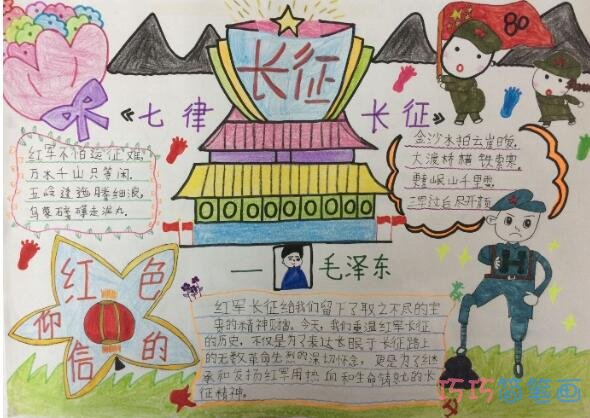 长征
80
《七律 长征》
红军不怕远征难,
万水千山只等闲,
五岭逶迤腾细浪,
乌蒙磅礴走泥丸。
金沙水拍云崖暖,
大渡桥横铁索寒。
更喜岷山千里雪,
三军过后尽开颜
—毛泽东
红色
的信仰
红军长征给我们留下了取之不尽的宝
贵的精神财富。今天,我们重温红军长征
的历史,不仅是为了表达长眠于长征路上
的无数革命先烈的深切怀念,更是为了继
承和发扬红军用热血和生命铸就的长
征精神。
巧巧简笔画